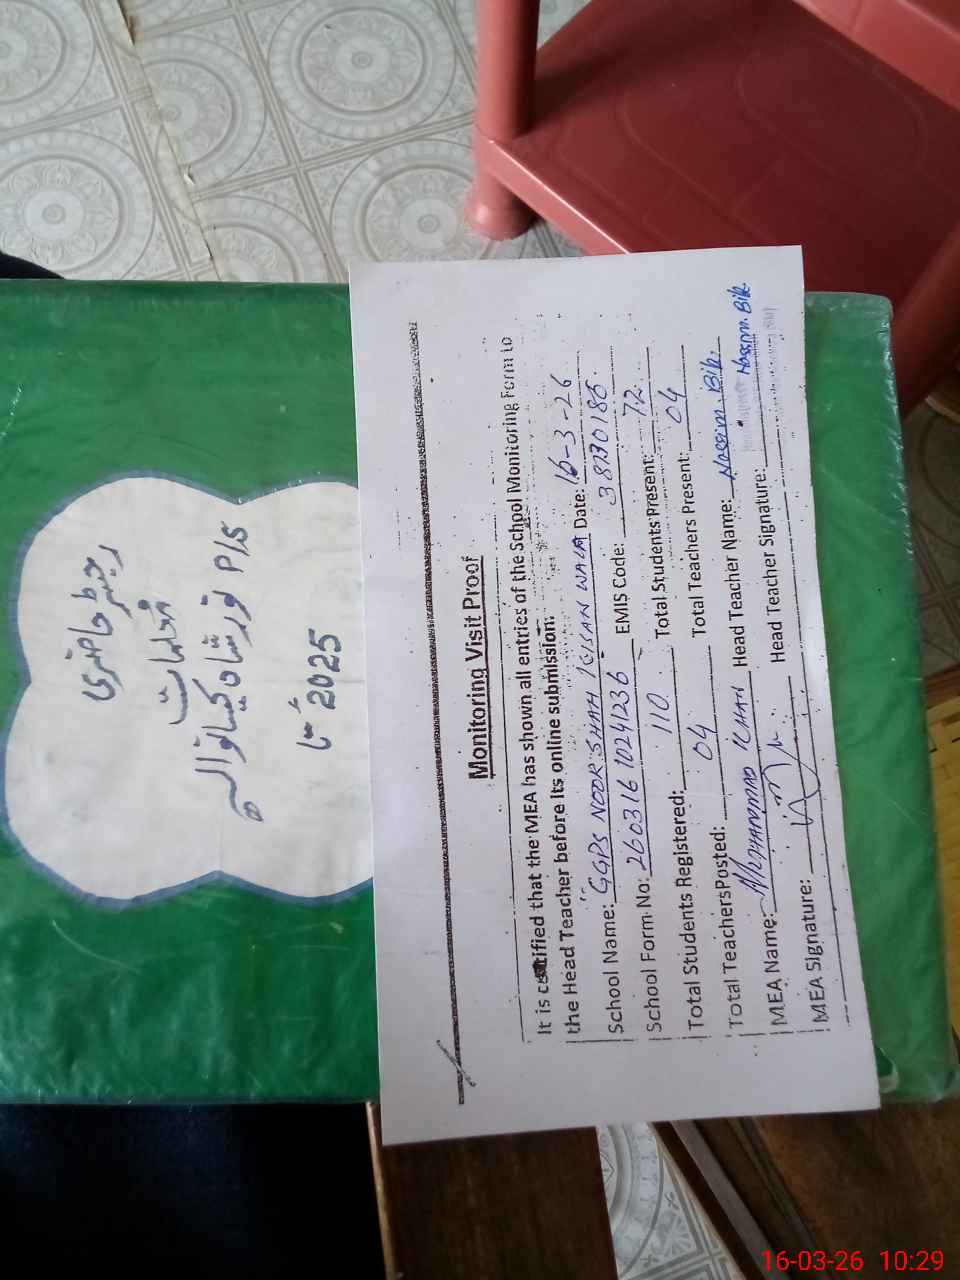 رجسٹر حاضری
معلمات
P/S نور شاہ کیسانوالہ
2025 تا
Monitoring Visit Proof
It is certified that the MEA has shown all entries of the School Monitoring Form to
the Head Teacher before its online submission:
School Name: GGPS NOOR SHAH KISAN WALA Date: 16-3-26
School Form No: 26031610241236 EMIS Code: 38130186
Total Students Registered: 110 Total Students Present: 72
Total Teachers Posted: 04 Total Teachers Present: 04
MEA Name: Muhammad Khan Head Teacher Name: Nassim. Bibi.
MEA Signature: Head Teacher Signature: Nassim. Bibi
16-03-26 10:29